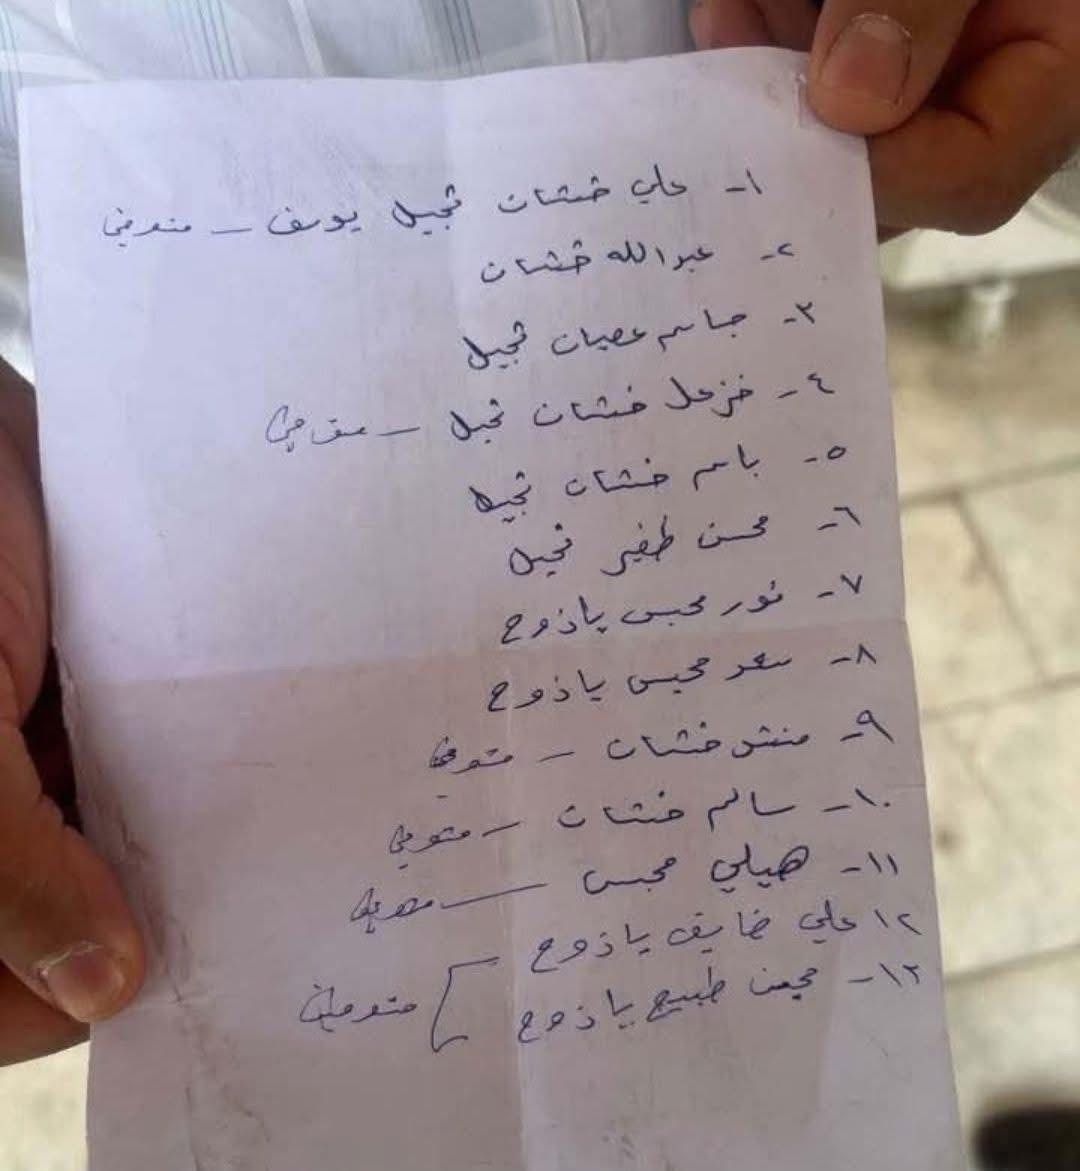 ١- علي خشان ثجيل يوسف - متوفي
٢- عبدالله خشان
٣- جاسم عصبان ثجيل
٤- خزعل خشان ثجيل - متوفي
٥- باسم خشان ثجيل
٦- محسن ثجيل
٧- نور محيسن ياذوح
٨- سعد محيسن ياذوح
٩- خشان - متوفي
١٠- سالم خشان - متوفي
١١- هيلي محيسن - متوفي
١٢ علي ضايف ياذوح
١٣- طبيج ياذوح
متوفين